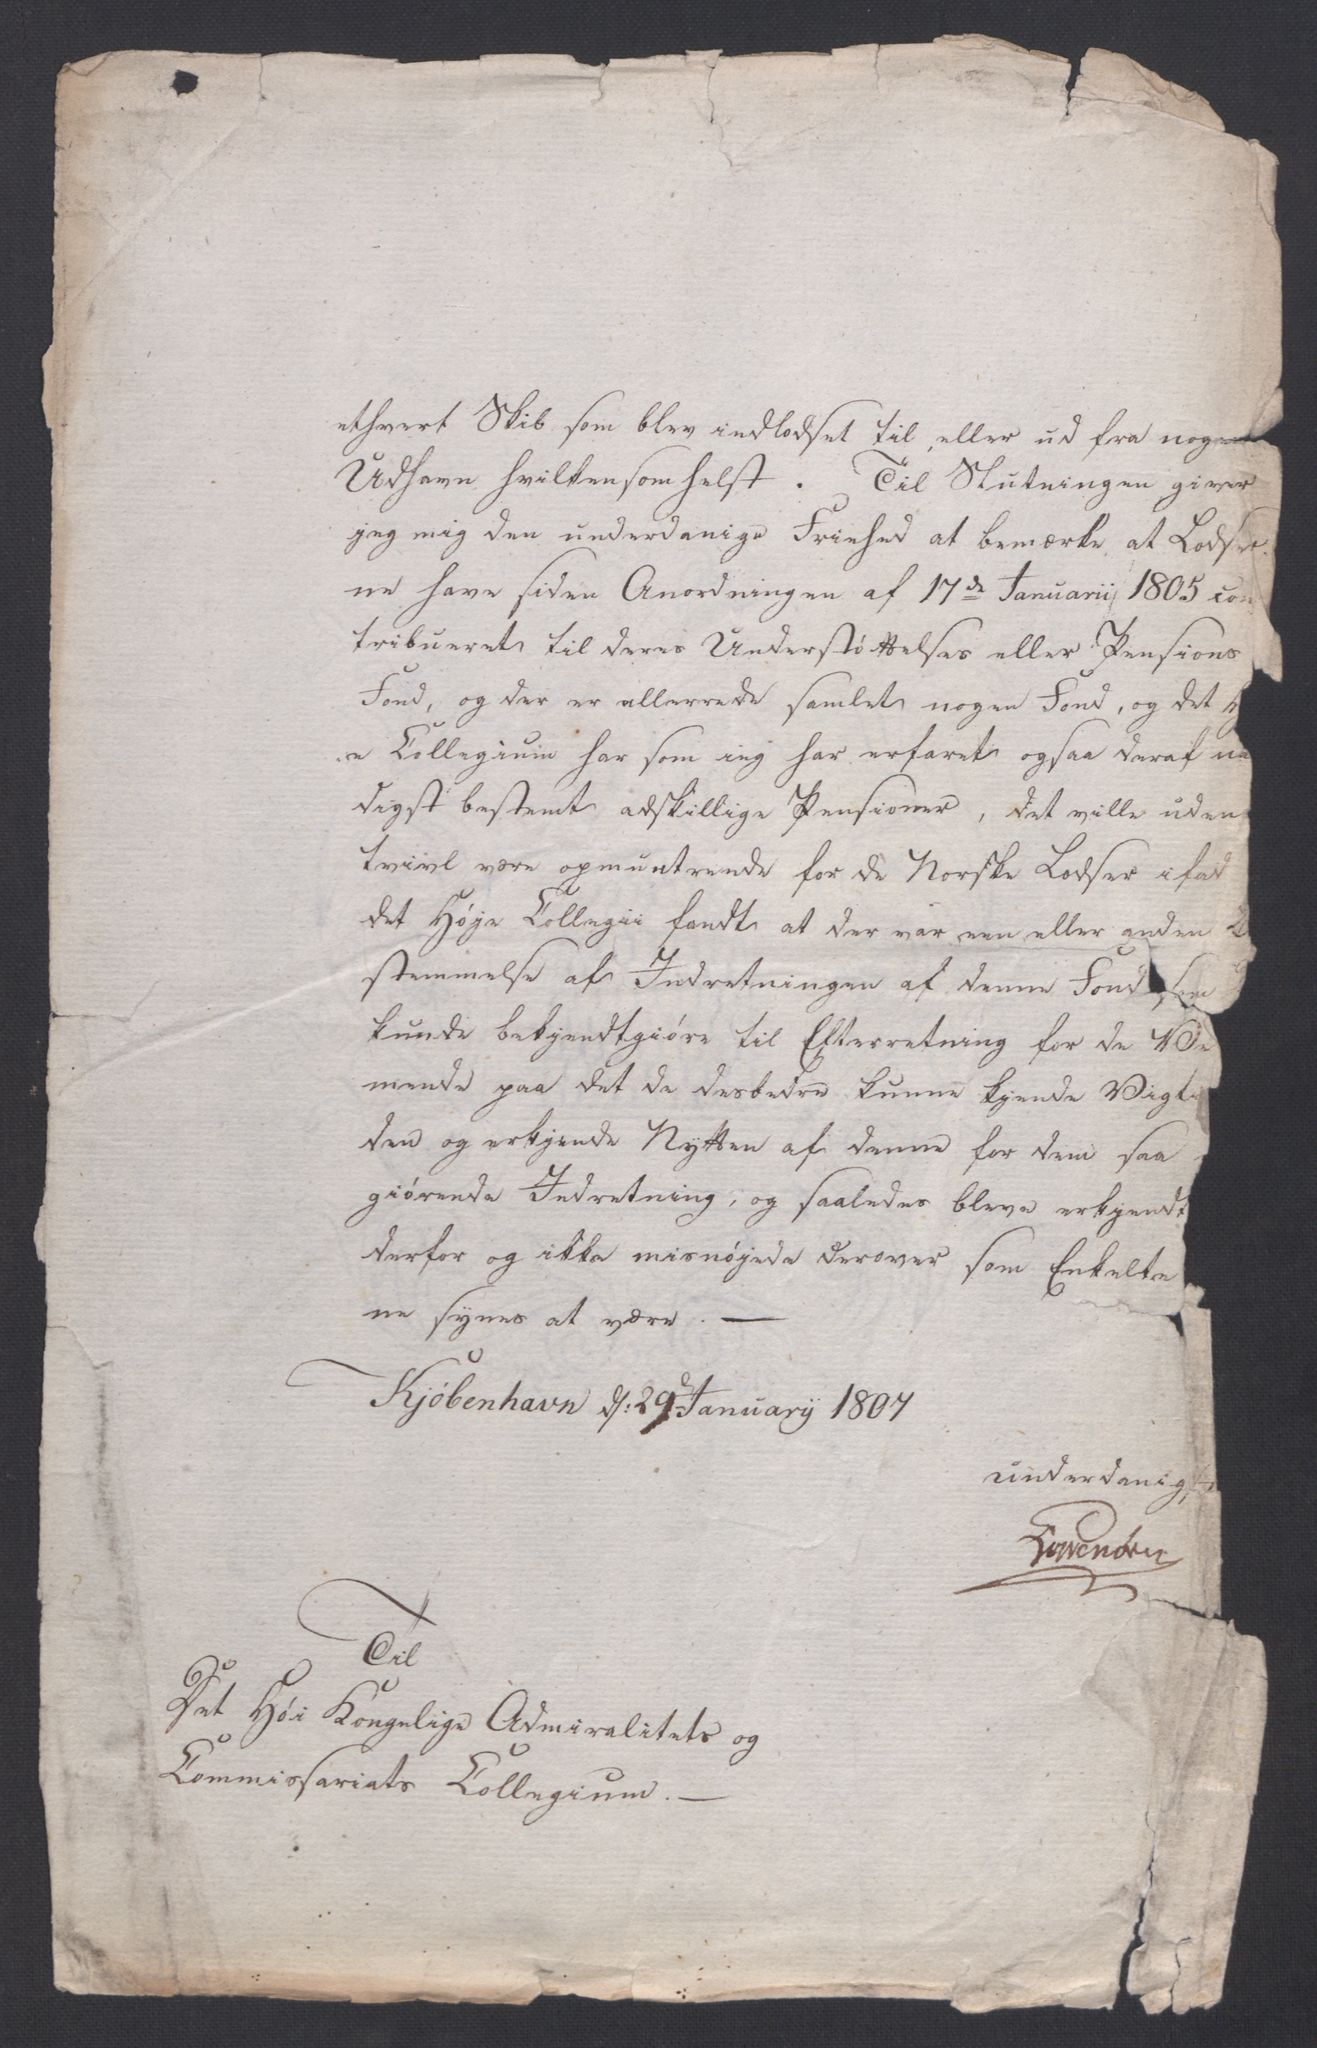 ethvert Skib som blev indlodset til, eller ud fra nogen
Udhavn hvilkensomhelst. Til Slutningen giver
jeg mig den underdanige Friehed at bemærke at Lodser
ne have siden Anordningen af 17de Januarii 1805 con
tribueret til deres Understøttelses eller Pensions
Fond, og der er allerrede samlet nogen Fond, og det H
e Collegium har som ieg har erfaret ogsaa deraf na
digst bestemt adskillige Pensioner, det ville uden
tvivl være opmuntrende for de Norske Lodser ifad
det Høje Collegii fandt at der var een eller anden
stemmelse af Indretningen af denne Fond som
kunde bekjendtgiøre til Efterretning for de Ve
mende paa det de desbedre kunne kjende Vigti
den og erkjende Nytten af denne for dem saa
giørende Indretning, og saaledes bleve erkjendt
derfor og ikke misnøjede derover som Enkelte
ne synes at være. —
Kjøbenhavn d: 29d Januarij 1807
underdanigst
Lövenörn
Til
Det Høi Kongelige Admiralitets og
Commissariats Collegium. —